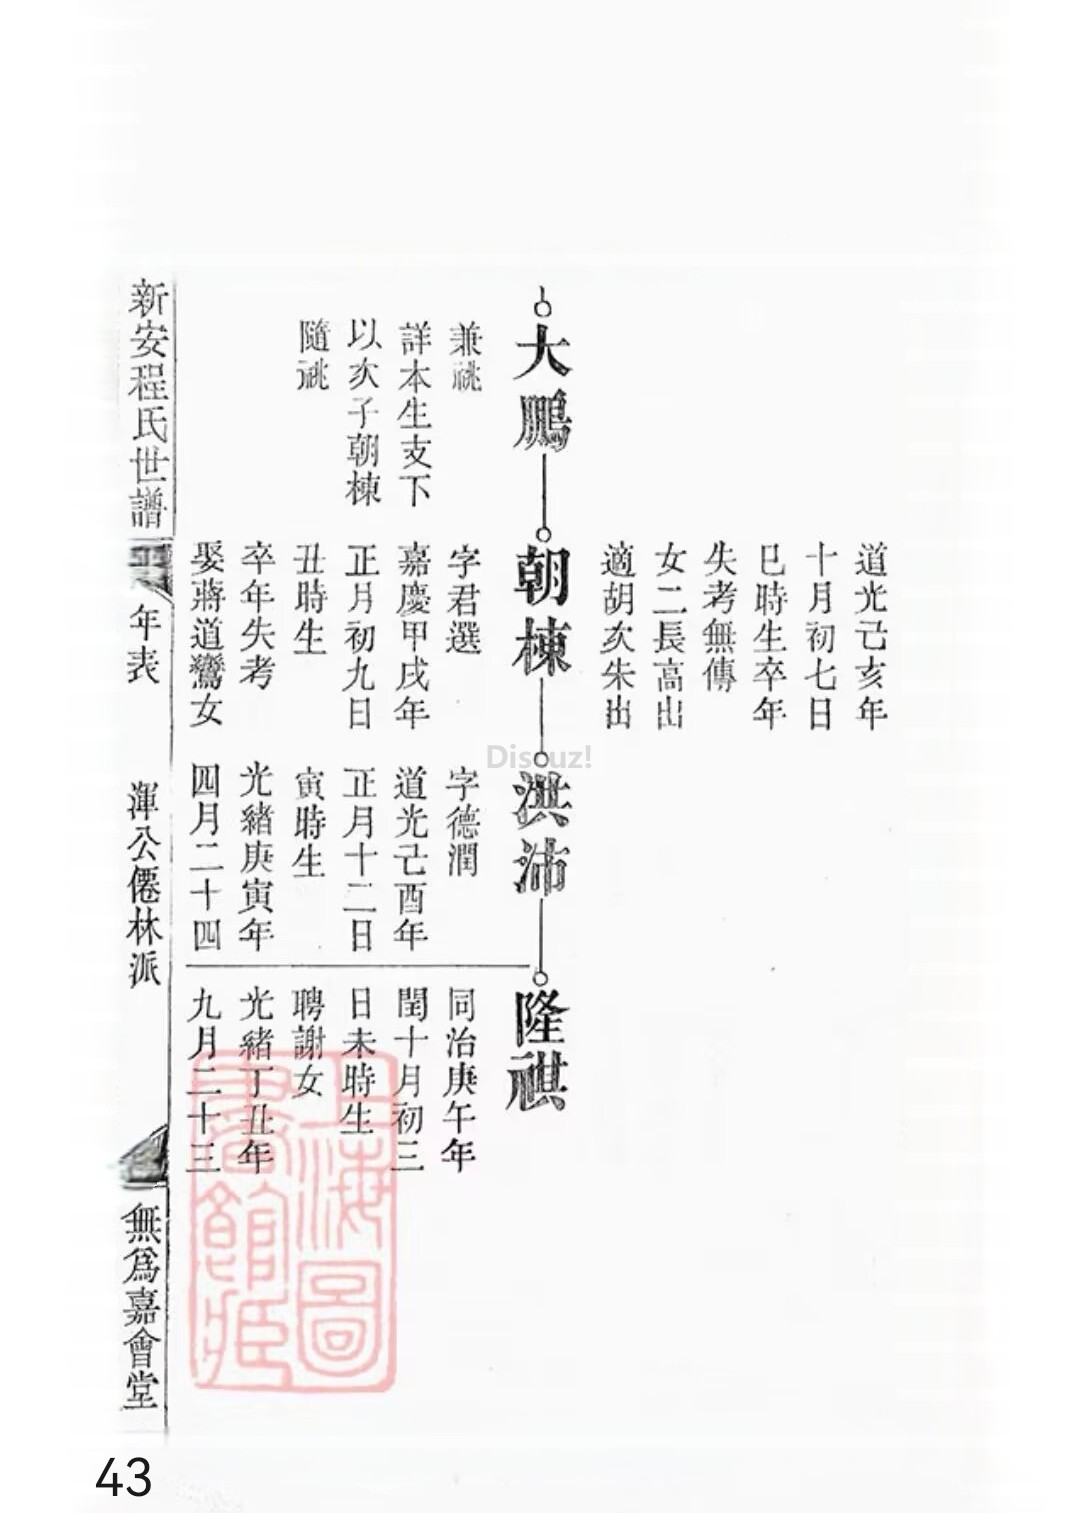 道光己亥年
十月初七日
巳時生卒年
失考無傳
女二長高出
適胡次朱出
大鵬
兼祧
詳本生支下
以次子朝棟
隨祧
朝棟
字君選
嘉慶甲戌年
正月初九日
丑時生
卒年失考
娶蔣道鸞女
洪沛
字德潤
道光己酉年
正月十二日
寅時生
光緒庚寅年
四月二十四
隆祺
同治庚午年
閏十月初三
日未時生
聘謝女
光緒丁丑年
九月二十三
新安程氏世譜
年表
渾公僊林派
無爲嘉會堂
上海圖
書館藏
Discuz!
43